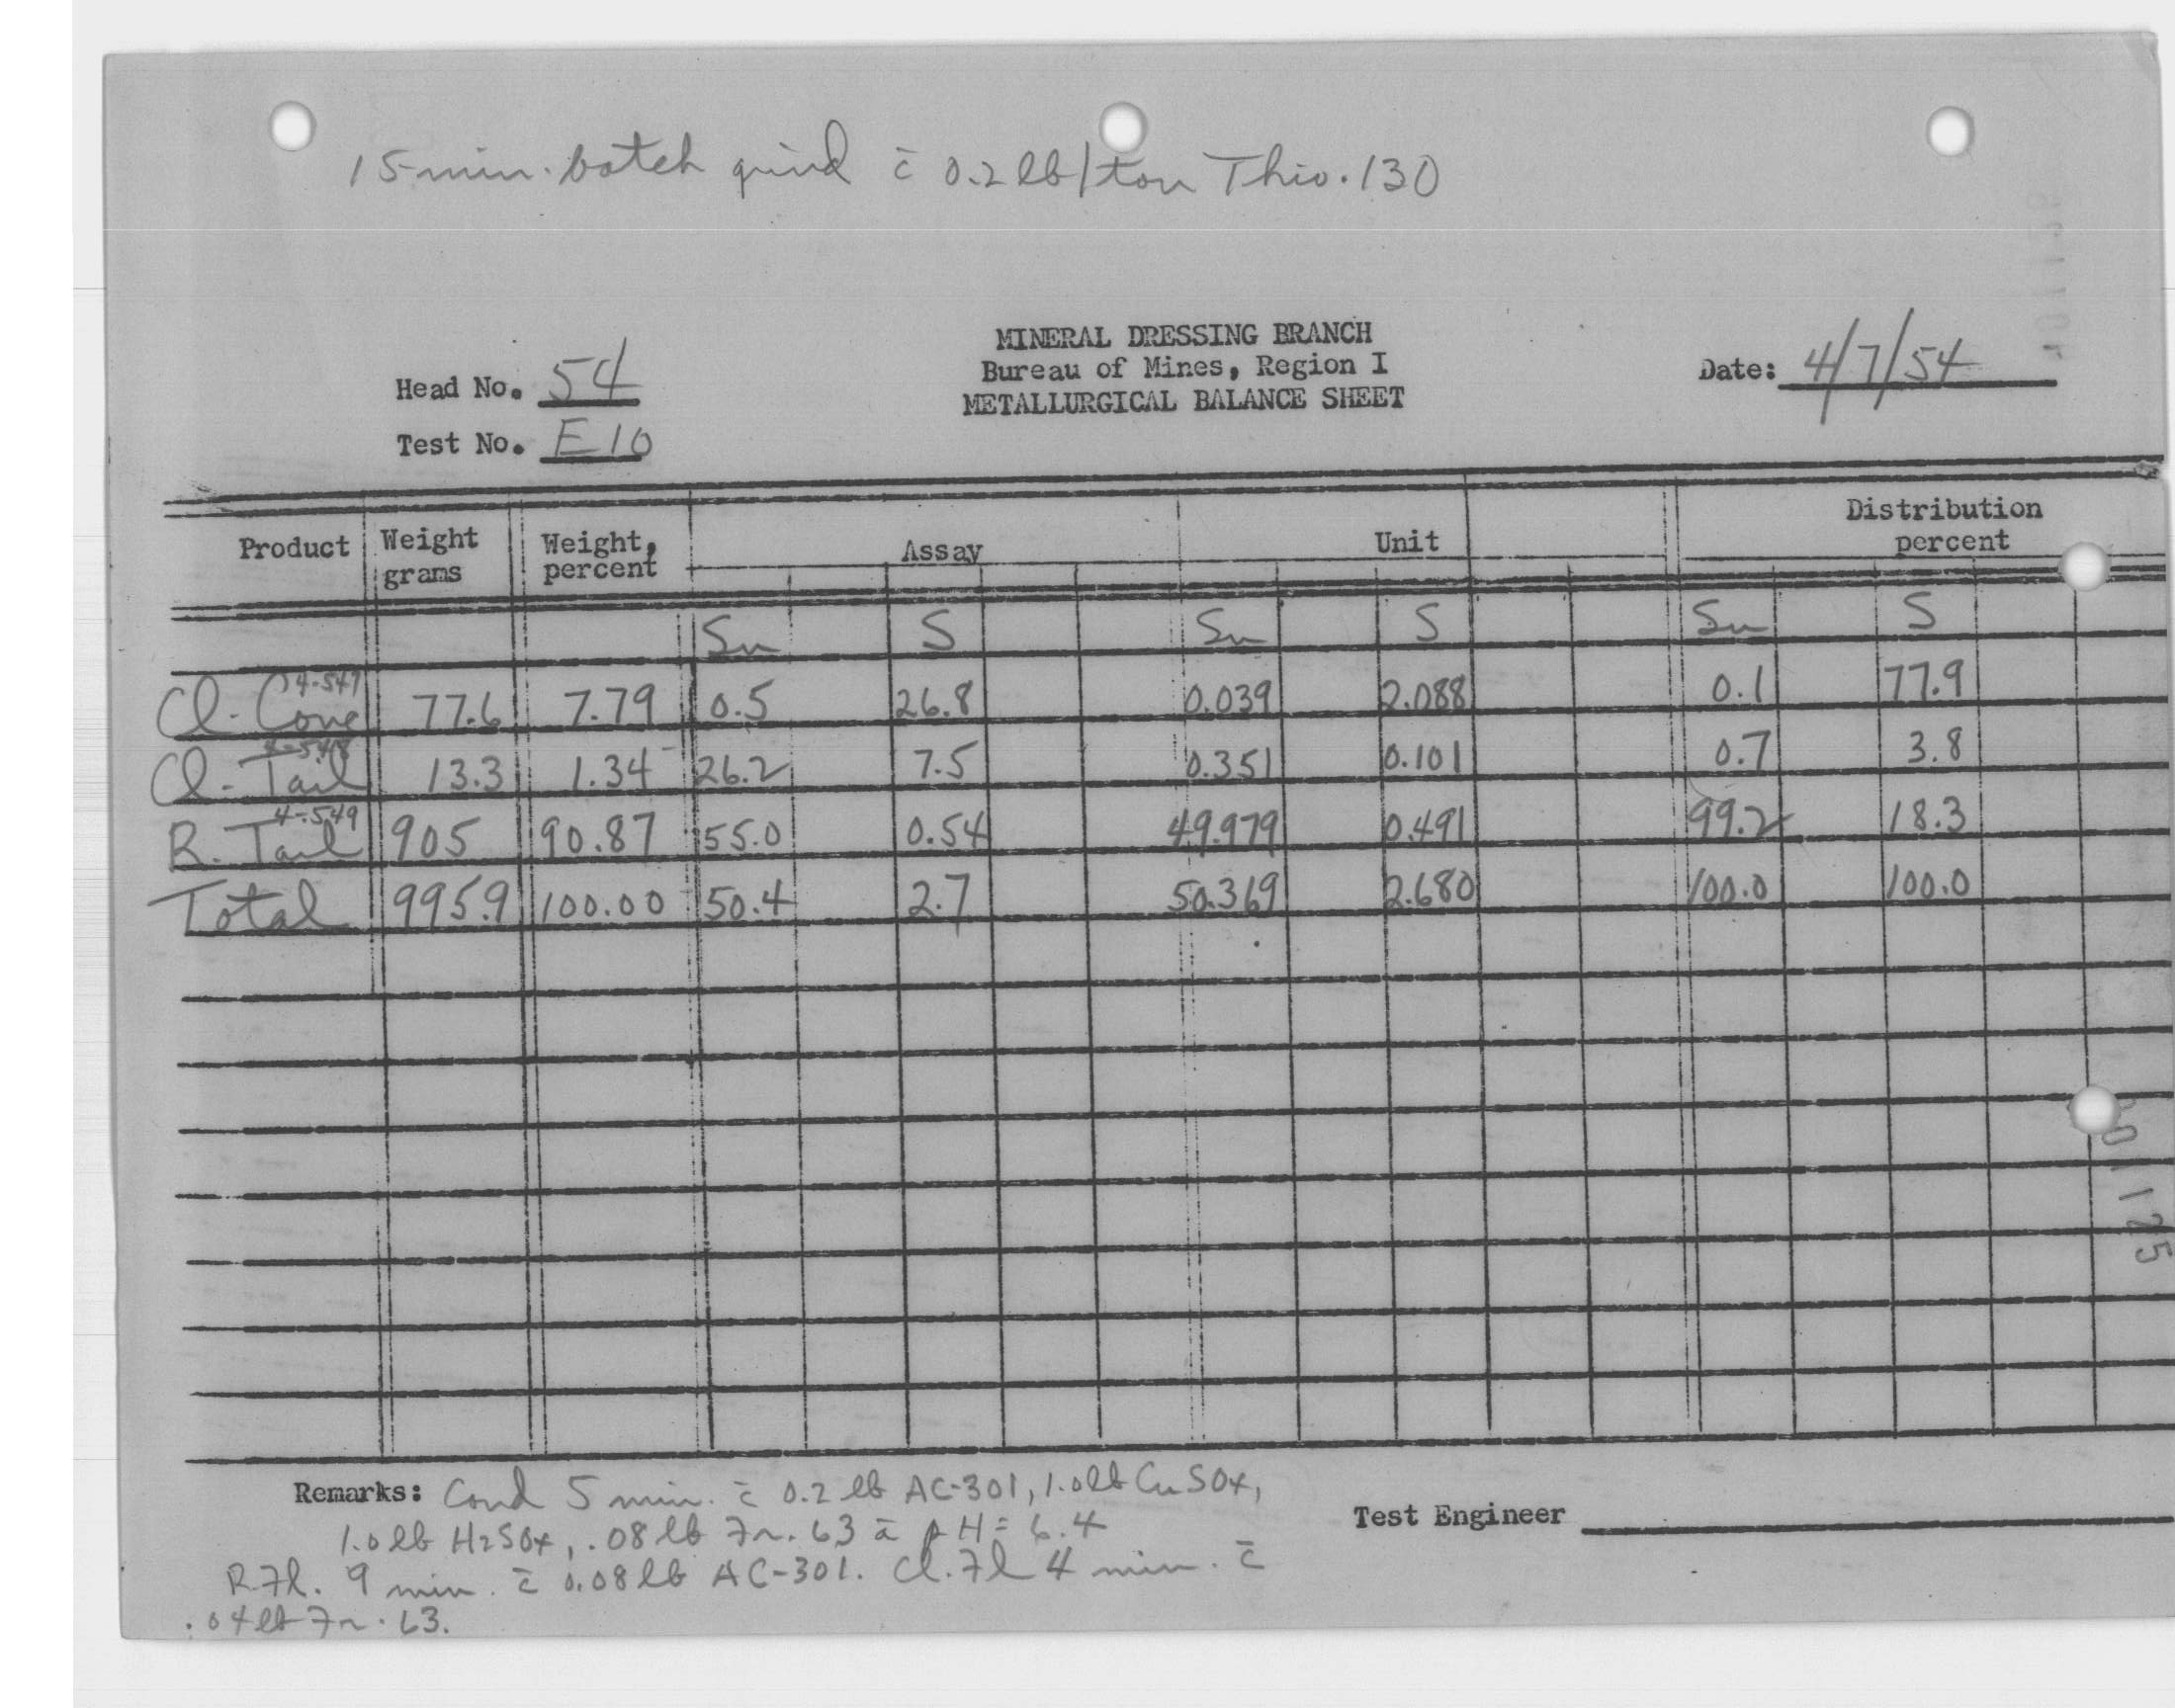 15-min. batch grind c̄ 0.2 lb/ton Thio. 130
MINERAL DRESSING BRANCH
Bureau of Mines, Region I
METALLURGICAL BALANCE SHEET
Head No. 54
Test No. E10
Date: 4/7/54
Product Weight grams Weight, percent Assay Unit Distribution percent
Sn S Sn S Sn S
4-547
Cl-Conc 77.6 7.79 0.5 26.8 0.039 2.088 0.1 77.9
4-548
Cl-Tail 13.3 1.34 26.2 7.5 0.351 0.101 0.7 3.8
4-549
R. Tail 905 90.87 55.0 0.54 49.979 0.491 99.2 18.3
Total 995.9 100.00 50.4 2.7 50.369 2.680 100.0 100.0
Remarks: Cond 5 min. c̄ 0.2 lb AC-301, 1.0 lb CuSO4,
1.0 lb H2SO4, .08 lb Fr. 63 ā pH = 6.4
R Fl. 9 min. c̄ 0.08 lb AC-301. Cl. Fl 4 min. c̄
.04 lb Fr. 63.
Test Engineer